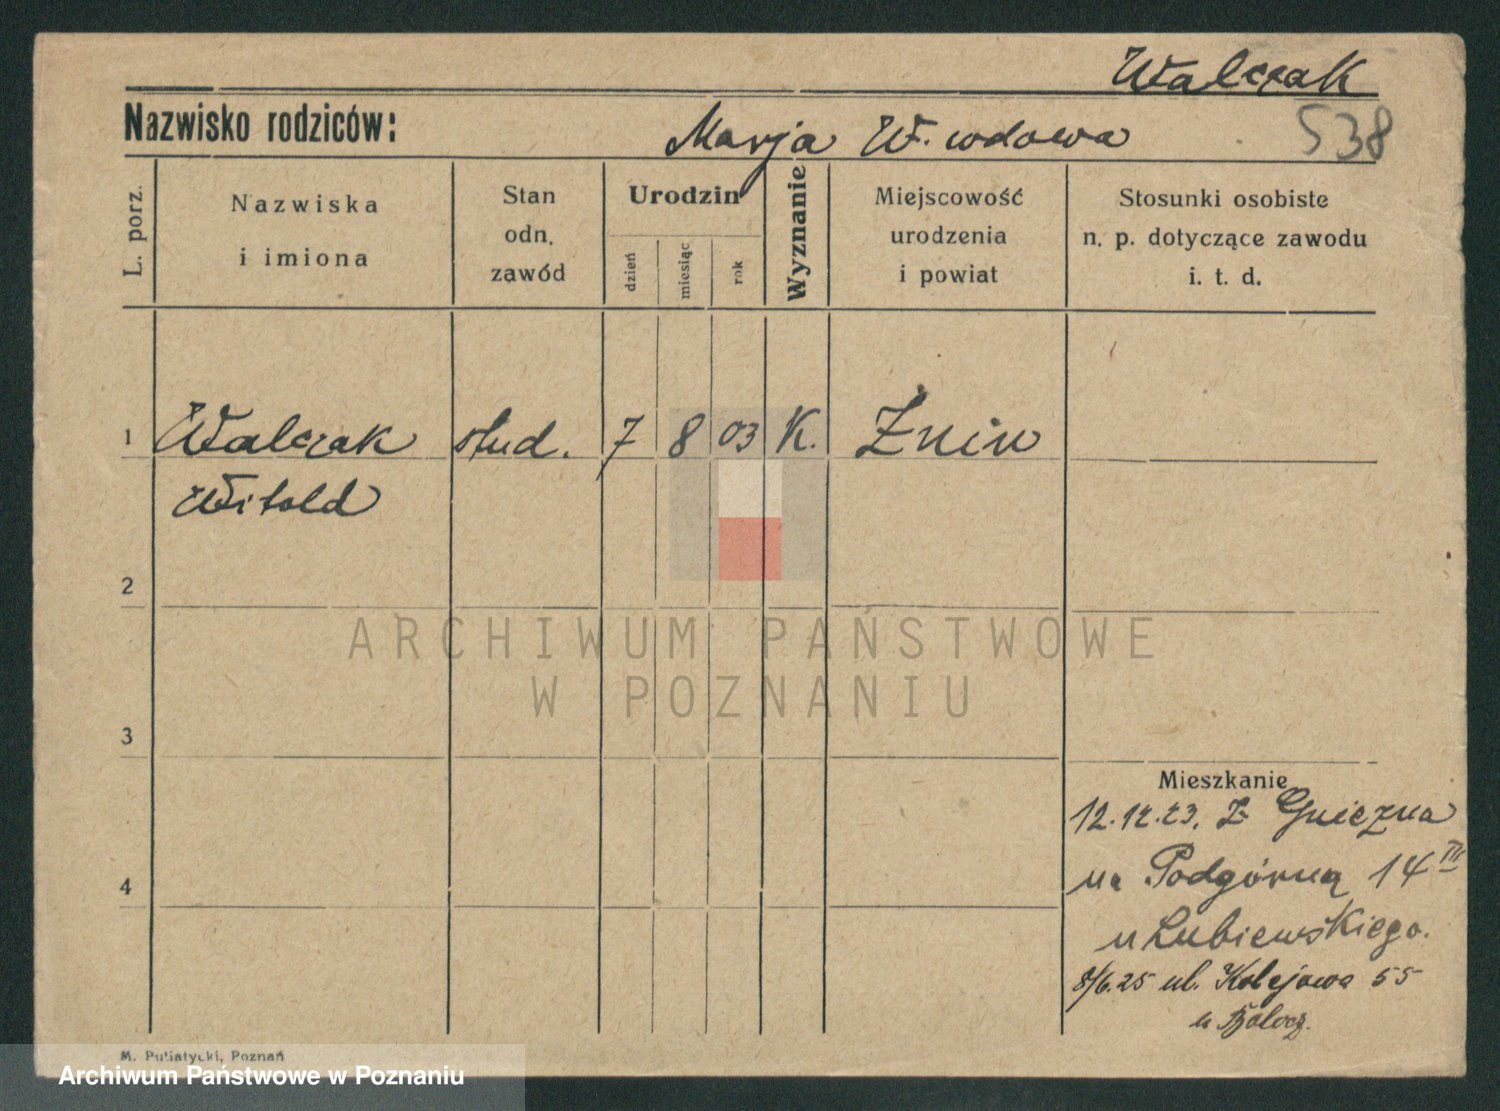 Walczak
Nazwisko rodziców: Marja W. wdowa 538
L. porz.
Nazwiska
i imiona
Stan
odn.
zawód
Urodzin
dzień
miesiąc
rok
Wyznanie
Miejscowość
urodzenia
i powiat
Stosunki osobiste
n. p. dotyczące zawodu
i. t. d.
1 Walczak stud. 7 8 03 K. Żnin
Witold
2
ARCHIWUM PAŃSTWOWE
W POZNANIU
3
Mieszkanie
12.12.23. Z Gniezna
na Podgórną 14 III
4
u Lubiewskiego.
8/6.25 ul. Kolejowa 55
u
M. Putiatycki, Poznań
Archiwum Państwowe w Poznaniu